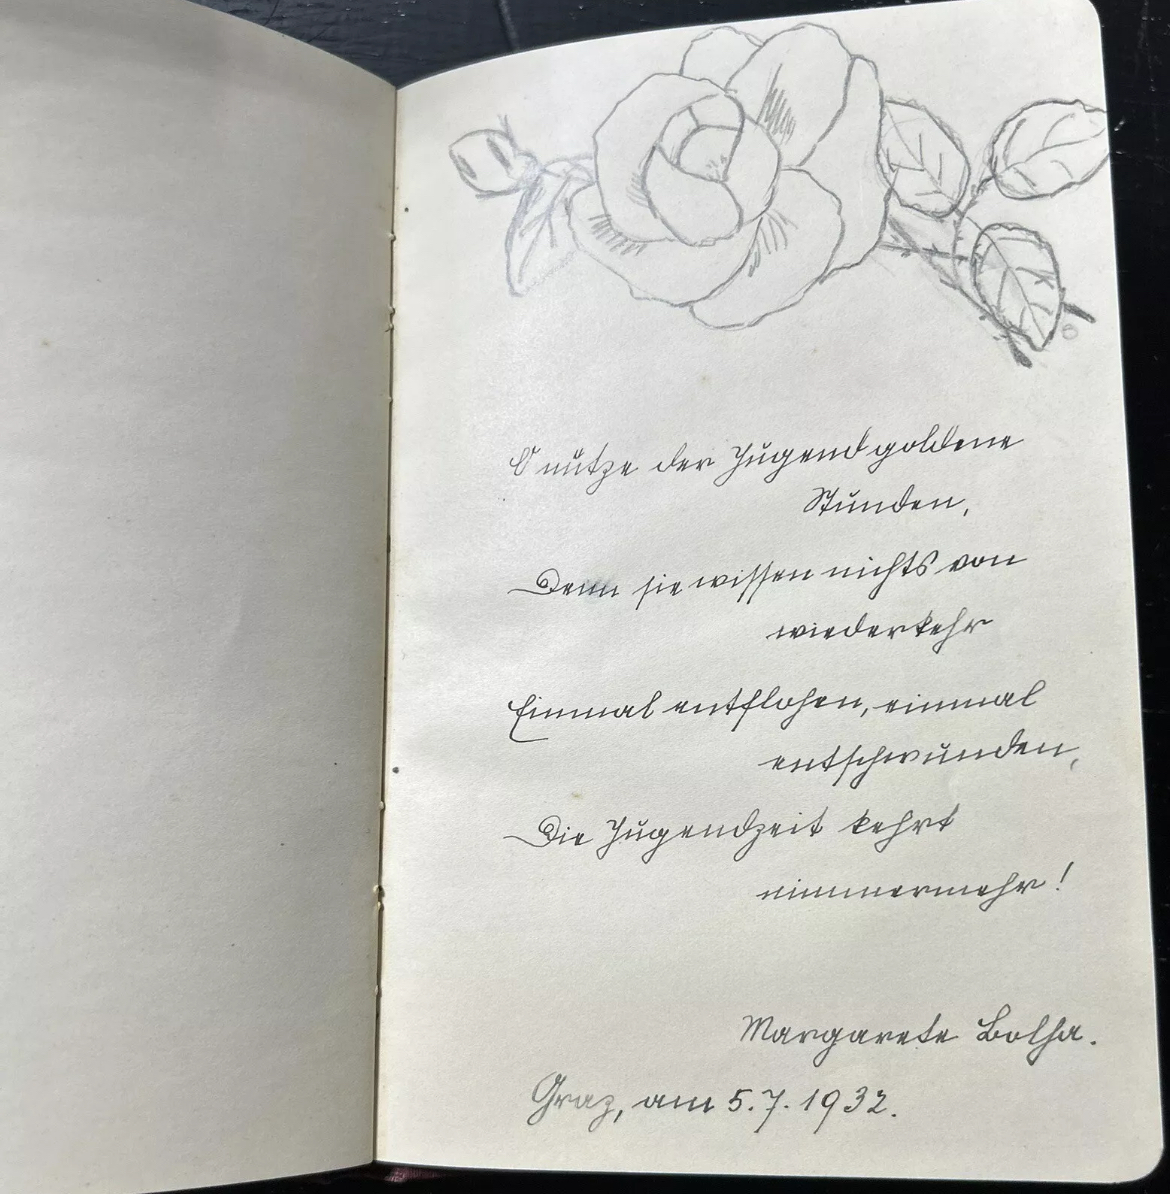 O nütze der Jugend goldene
Stunden,
Denn sie wissen nichts von
wiederkehr
Einmal entflohen, einmal
entschwunden,
Die Jugendzeit kehrt
nimmermehr!
Margarete
Graz, am 5.7.1932.